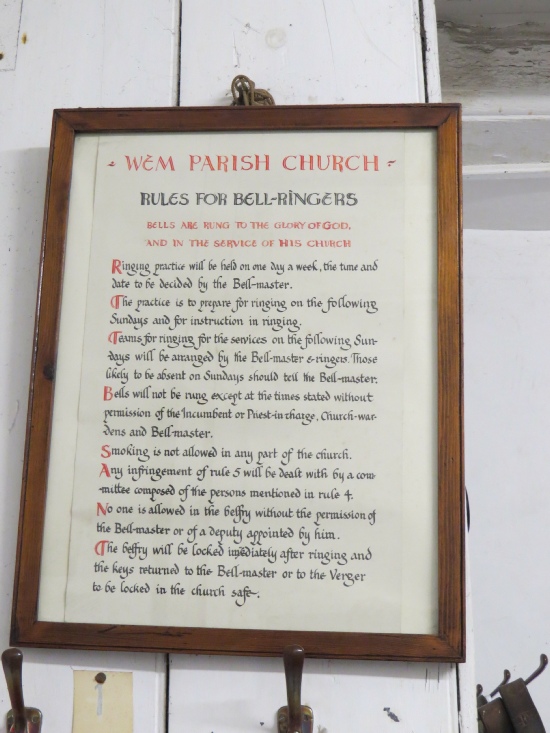 WEM PARISH CHURCH
RULES FOR BELL-RINGERS
BELLS ARE RUNG TO THE GLORY OF GOD,
AND IN THE SERVICE OF HIS CHURCH
Ringing practice will be held on one day a week, the time and
date to be decided by the Bell-master.
The practice is to prepare for ringing on the following
Sundays and for instruction in ringing.
Teams for ringing for the services on the following Sun-
days will be arranged by the Bell-master & ringers. Those
likely to be absent on Sundays should tell the Bell-master.
Bells will not be rung except at the times stated without
permission of the Incumbent or Priest-in charge, Church-war-
dens and Bell-master.
Smoking is not allowed in any part of the church.
Any infringement of rule 5 will be dealt with by a com-
mittee composed of the persons mentioned in rule 4.
No one is allowed in the belfry without the permission of
the Bell-master or of a deputy appointed by him.
The belfry will be locked imediately after ringing and
the keys returned to the Bell-master or to the Verger
to be locked in the church safe.